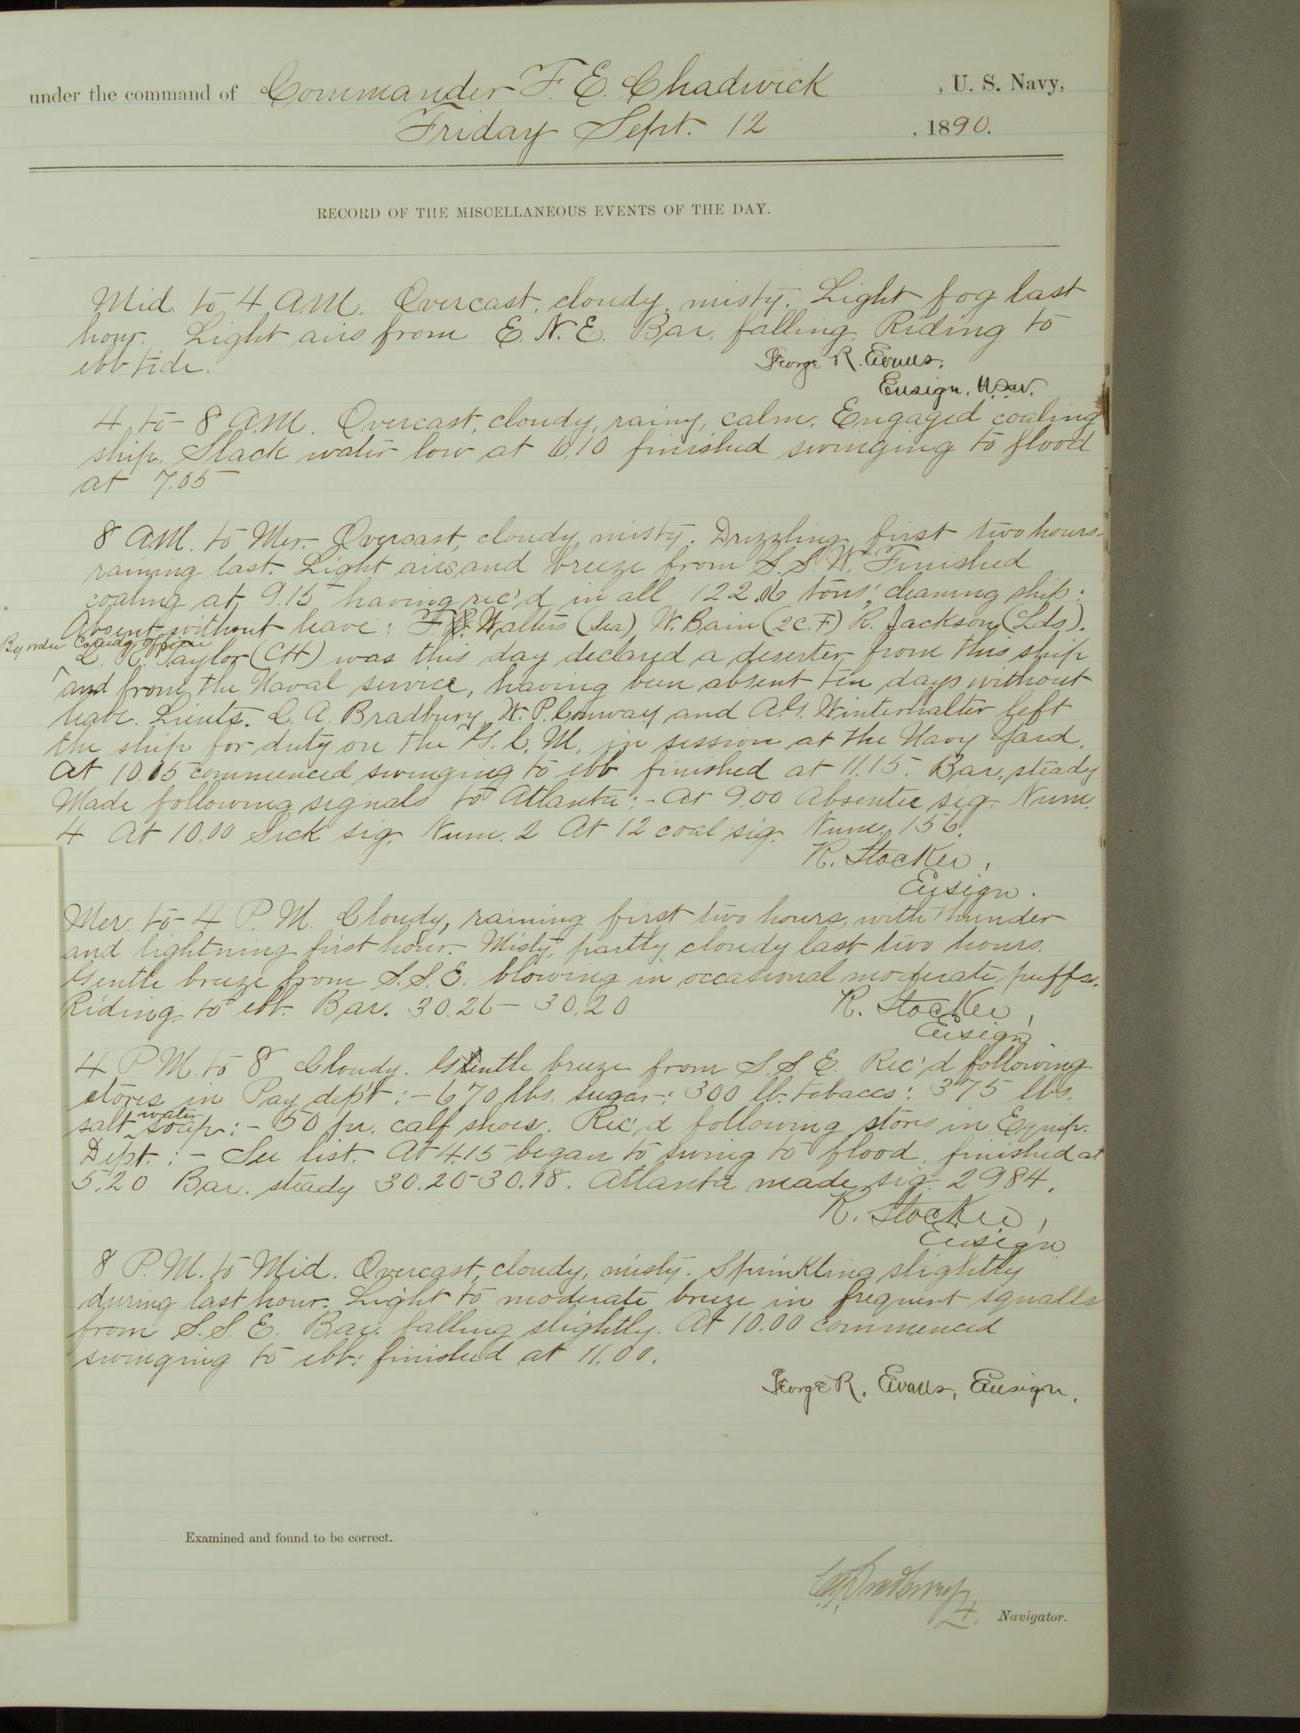 under the command of Commander F. E. Chadwick , U. S. Navy,
Friday Sept. 12 , 1890.
RECORD OF THE MISCELLANEOUS EVENTS OF THE DAY.
Mid. to 4 A.M. Overcast, cloudy, misty. Light fog last
hour. Light airs from E. N. E. Bar. falling. Riding to
ebb tide. George R. Evans,
Ensign, U.S.N.
4 to 8 A.M. Overcast, cloudy, rainy, calm. Engaged coaling
ship. Slack water low at 6.10 finished swinging to flood
at 7.05
8 A.M. to Mer. Overcast, cloudy, misty. Drizzling first two hours
raining last. Light airs and breeze from S. S. W. Finished
coaling at 9.15 having rec'd in all 122 tons; cleaning ship:
Absent without leave: F. Walters (Sea), W. Bain (2 C. F.) R. Jackson (Lds).
By order Comdg officer
L. R. Taylor (CH) was this day declared a deserter from this ship
and from the Naval service, having been absent ten days without
leave. Lieuts. C. A. Bradbury, W. P. Conway and A. G. Winterhalter left
the ship for duty on the G. C. M. in session at the Navy Yard.
At 10.15 commenced swinging to ebb finished at 11.15. Bar. steady
Made following signals to Atlanta: - At 9.00 Absentee sig. Num.
4 At 10.00 Sick sig. Num. 2 At 12 coal sig. Num. 156.
K. Stocker,
Ensign.
Mer. to 4 P. M. Cloudy, raining first two hours, with thunder
and lightning first hour. Misty, partly cloudy last two hours.
Gentle breeze from S. S. E. blowing in occasional moderate puffs.
Riding to ebb. Bar. 30.26 - 30.20 K. Stocker,
Ensign
4 P. M. to 8 Cloudy. Gentle breeze from S. S. E. Rec'd following
stores in Pay dep't: - 670 lbs. sugar: 300 lb. tobacco: 375 lbs.
salt water soap: - 50 pr. calf shoes. Rec'd following stores in Equip.
Dept.: - See list. At 4.15 began to swing to flood, finished at
5.20 Bar. steady 30.20 - 30.18. Atlanta made sig. 2984.
K. Stocker,
Ensign
8 P. M. to Mid. Overcast, cloudy, misty. Sprinkling slightly
during last hour. Light to moderate breeze in frequent squalls
from S. S. E. Bar. falling slightly. At 10.00 commenced
swinging to ebb: finished at 11.00.
George R. Evans, Ensign.
Examined and found to be correct.
C. A. Bradbury
Lt. Navigator.